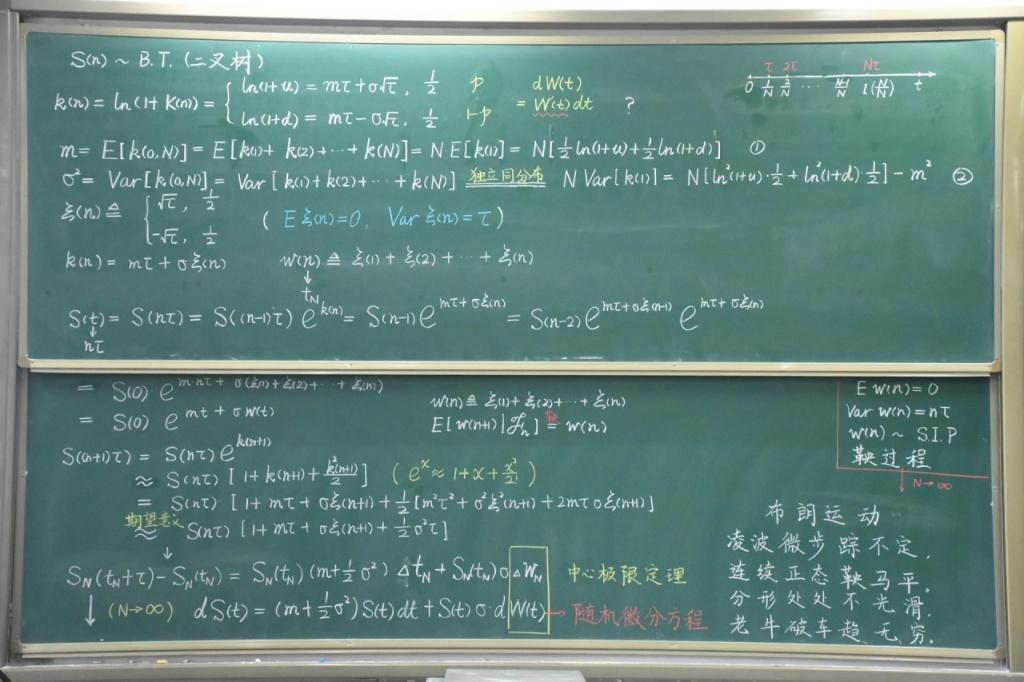 S(n) ~ B.T. (二叉树)
k(n) = ln(1+K(n)) = { ln(1+u) = mτ + σ√τ, 1/2 p
ln(1+d) = mτ - σ√τ, 1/2 1-p
dW(t)
= Ẇ(t)dt ?
τ 2τ Nτ
0 1/N 2/N ... N/N 1(N/N) t
m = E[k(0,N)] = E[k(1)+ k(2)+...+ k(N)] = N E[k(1)] = N[1/2 ln(1+u) + 1/2 ln(1+d)] ①
σ² = Var[k(0,N)] = Var[k(1)+k(2)+...+k(N)] 独立同分布 N Var[k(1)] = N[ln²(1+u)·1/2 + ln²(1+d)·1/2] - m² ②
ξ(n) ≜ { √τ, 1/2
-√τ, 1/2
( Eξ(n)=0, Var ξ(n)=τ )
k(n) = mτ + σξ(n) w(n) ≜ ξ(1) + ξ(2) + ... + ξ(n)
↓
t_N
S(t) = S(nτ) = S((n-1)τ) e^{k(n)} = S(n-1) e^{mτ+σξ(n)} = S(n-2) e^{mτ+σξ(n-1)} e^{mτ+σξ(n)}
↓
nτ
= S(0) e^{m·nτ + σ(ξ(1)+ξ(2)+...+ξ(n))}
= S(0) e^{mt + σw(t)}
w(n) ≜ ξ(1)+ξ(2)+...+ξ(n)
E[w(n+1)|ℱ_n] = w(n)
鞅
E w(n) = 0
Var w(n) = nτ
w(n) ~ S.I.P
鞅过程
↓ N→∞
S((n+1)τ) = S(nτ) e^{k(n+1)}
≈ S(nτ) [1+k(n+1)+ k²(n+1)/2] (e^x ≈ 1+x+x²/2!)
= S(nτ) [1+mτ+σξ(n+1)+1/2[m²τ²+σ²ξ²(n+1)+2mτσξ(n+1)]
期望意义
≈ S(nτ) [1+mτ+σξ(n+1)+1/2σ²τ]
↓
S_N(t_N+τ) - S_N(t_N) = S_N(t_N)(m+1/2σ²) Δt_N + S_N(t_N)σΔW_N 中心极限定理
↓ (N→∞) dS(t) = (m+1/2σ²)S(t)dt + S(t)σ dW(t) → 随机微分方程
布朗运动
凌波微步踪不定,
连续正态鞅马平.
分形处处不光滑.
老牛破车趋无穷.